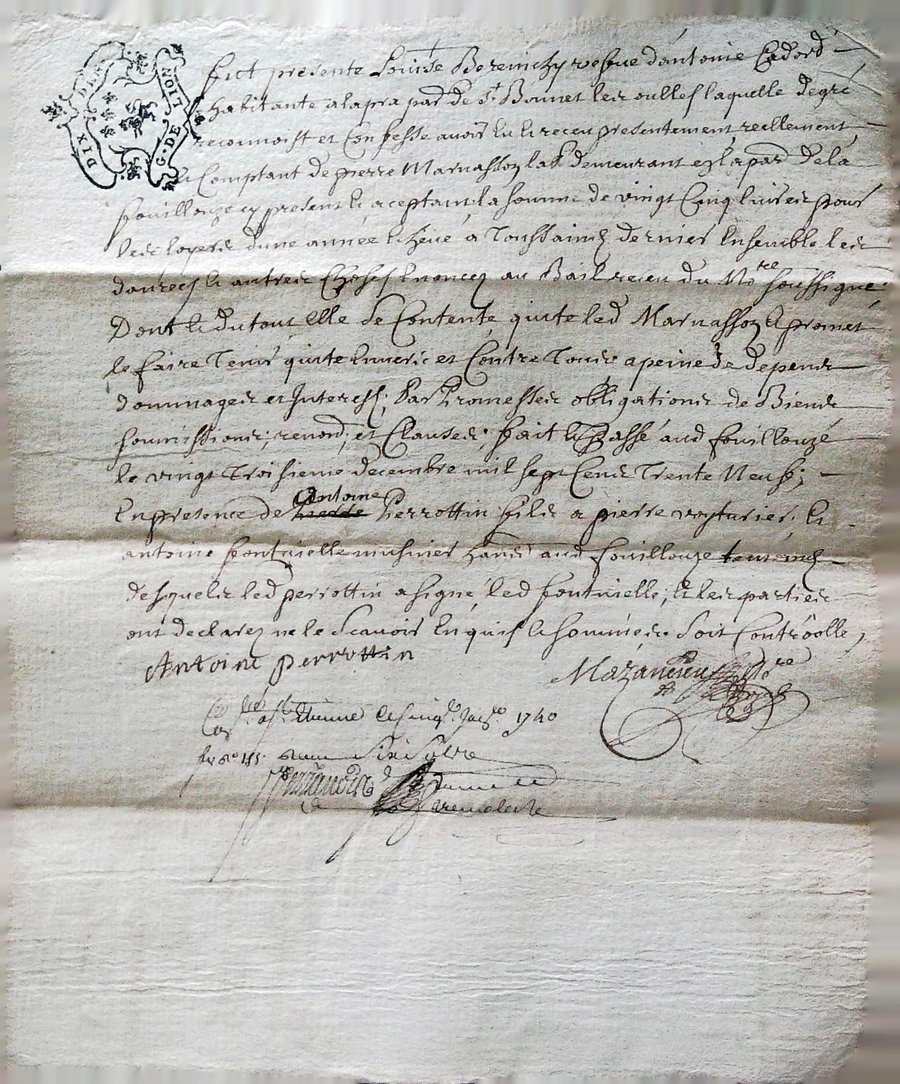 DIX DEN.
G. DE LION
Fut présente Louise Berenichy vefve d'antoine Cadord
habitante a la par de St Bonnet les oulles laquelle de gré
reconnoist et Confesse avoir Eu et receu presentement, reellement
et Comptant de pierre Marnasson lab demeurant en la par de la
fouillouze cy present et aceptant la somme de vingt Cinq livres pour
les loyers d'une année Echeue a Toussaincts dernier Ensemble les
danrees et autres Choses Enoncez au Bail receu du Nore soussigné
Dont et du tout Elle se Contente quite led Marnasson et promet
le faire Tenir quite Envers et Contre Tous a peine de depens
dommages et Interest; Par Promesses obligations de Biens
soumissions; renon; et Clauses; fait et Passé aud fouillouze
le vingt Troisieme decembre mil sept Cens Trente Neuf;
En presence de Antoine Perrottin fils a pierre voyturier, et
antoine fontvielle musnier aud fouillouze temoins
desquels led perrottin a signé led fontvielle; et les parties
ont declarez ne le Scavoir Enquis et sommés. Soit Contrôolle,
Antoine perrottin
Nore
a St Etienne le cinq Janr 1740